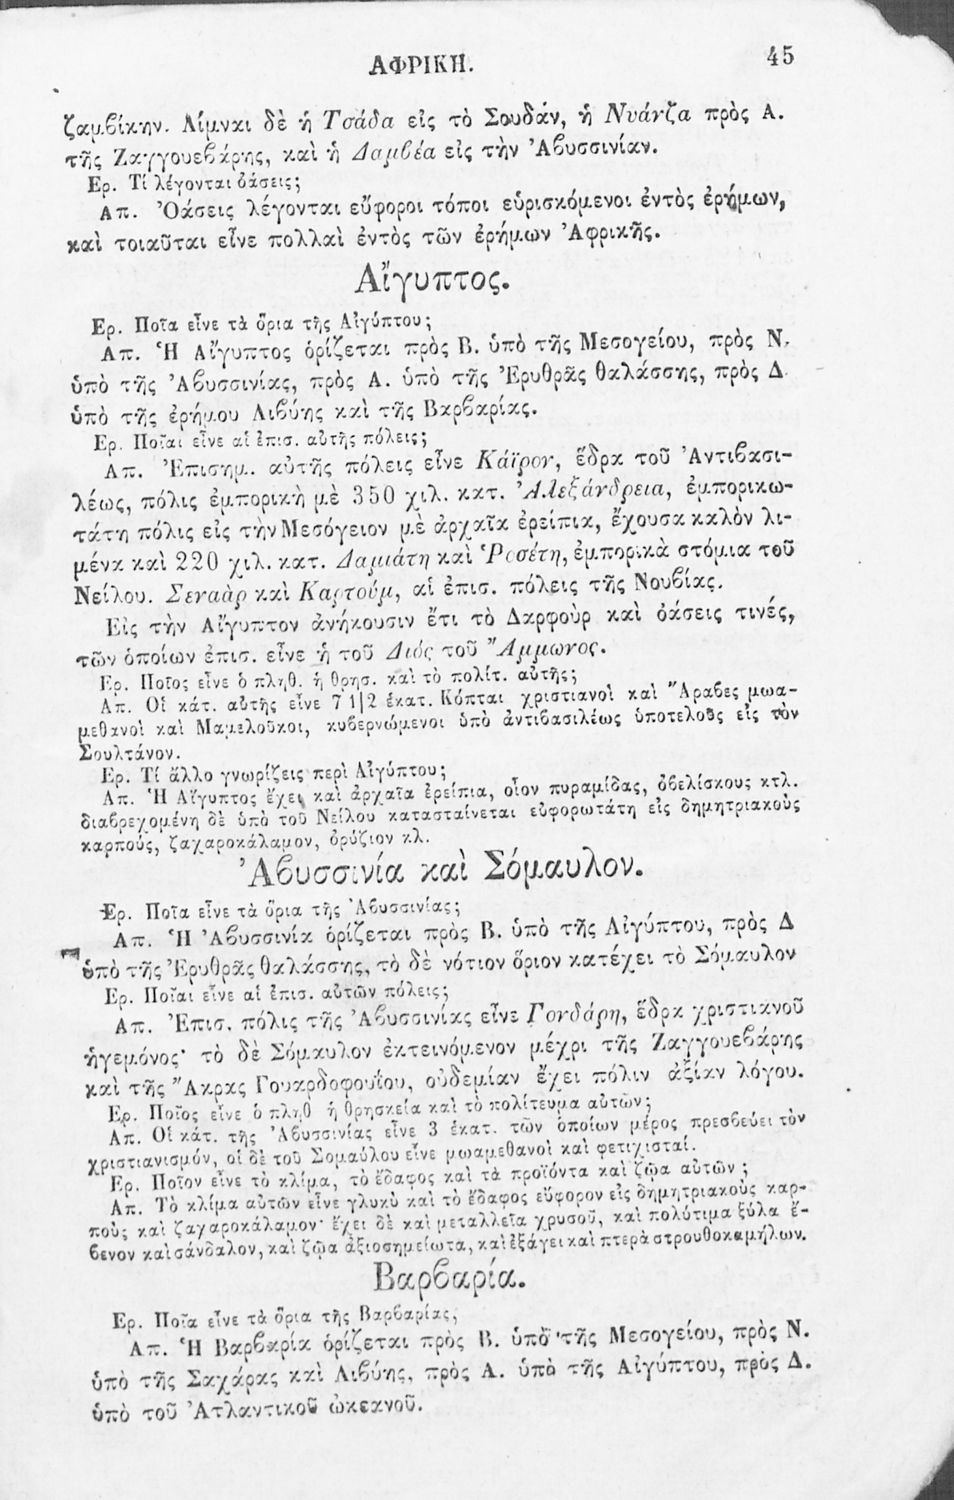 ΑΦΡΙΚΗ.
45
ζαμβίκην. Λίμναι δὲ ἡ Τσάδα εἰς τὸ Σουδάν, ἡ Νυάνζα πρὸς Α.
τῆς Ζαγγουεβάρης, καὶ ἡ Δαμβέα εἰς τὴν Ἀβυσσινίαν.
Ερ. Τί λέγονται ὀάσεις;
Απ. Ὀάσεις λέγονται εὔφοροι τόποι εὑρισκόμενοι ἐντὸς ἐρήμων,
καὶ τοιαῦται εἶνε πολλαὶ ἐντὸς τῶν ἐρήμων Ἀφρικῆς.
Αἴγυπτος.
Ερ. Ποῖα εἶνε τὰ ὅρια τῆς Αἰγύπτου;
Απ. Ἡ Αἴγυπτος ὁρίζεται πρὸς Β. ὑπὸ τῆς Μεσογείου, πρὸς Ν.
ὑπὸ τῆς Ἀβυσσινίας, πρὸς Α. ὑπὸ τῆς Ἐρυθρᾶς θαλάσσης, πρὸς Δ.
ὑπὸ τῆς ἐρήμου Λιβύης καὶ τῆς Βαρβαρίας.
Ερ. Ποῖαι εἶνε αἱ ἐπισ. αὐτῆς πόλεις;
Απ. Ἐπισημ. αὐτῆς πόλεις εἶνε Κάϊρον, ἕδρα τοῦ Ἀντιβασι-
λέως, πόλις ἐμπορικὴ μὲ 350 χιλ. κατ. Ἀλεξάνδρεια, ἐμπορικω-
τάτη πόλις εἰς τὴν Μεσόγειον μὲ ἀρχαῖα ἐρείπια, ἔχουσα καλὸν λι-
μένα καὶ 220 χιλ. κατ. Δαμιάτη καὶ Ῥοσέτη, ἐμπορικὰ στόμια τοῦ
Νείλου. Σεναὰρ καὶ Καρτούμ, αἱ ἐπισ. πόλεις τῆς Νουβίας.
Εἰς τὴν Αἴγυπτον ἀνήκουσιν ἔτι τὸ Δαρφοὺρ καὶ ὀάσεις τινές,
τῶν ὁποίων ἐπισ. εἶνε ἡ τοῦ Διὸς τοῦ Ἄμμωνος.
Ερ. Ποῖος εἶνε ὁ πληθ. ἡ θρησ. καὶ τὸ πολίτ. αὐτῆς;
Απ. Οἱ κάτ. αὐτῆς εἶνε 7 1|2 ἑκατ. Κόπται χριστιανοὶ καὶ Ἄραβες μωα-
μεθανοὶ καὶ Μαμελοῦκοι, κυβερνώμενοι ὑπὸ ἀντιβασιλέως ὑποτελοῦς εἰς τὸν
Σουλτάνον.
Ερ. Τί ἄλλο γνωρίζεις περὶ Αἰγύπτου;
Απ. Ἡ Αἴγυπτος ἔχει καὶ ἀρχαῖα ἐρείπια, οἷον πυραμίδας, ὀβελίσκους κτλ.
διαβρεχομένη δὲ ὑπὸ τοῦ Νείλου κατασταίνεται εὐφορωτάτη εἰς δημητριακοὺς
καρπούς, ζαχαροκάλαμον, ὀρύζιον κλ.
Ἀβυσσινία καὶ Σόμαυλον.
Ερ. Ποῖα εἶνε τὰ ὅρια τῆς Ἀβυσσινίας;
Απ. Ἡ Ἀβυσσινία ὁρίζεται πρὸς Β. ὑπὸ τῆς Αἰγύπτου, πρὸς Δ
ὑπὸ τῆς Ἐρυθρᾶς θαλάσσης, τὸ δὲ νότιον ὅριον κατέχει τὸ Σόμαυλον
Ερ. Ποῖαι εἶνε αἱ ἐπισ. αὐτῶν πόλεις;
Απ. Ἐπισ. πόλις τῆς Ἀβυσσινίας εἶνε Γονδάρη, ἕδρα χριστιανοῦ
ἡγεμόνος· τὸ δὲ Σόμαυλον ἐκτεινόμενον μέχρι τῆς Ζαγγουεβάρης
καὶ τῆς Ἄκρας Γουαρδοφουΐου, οὐδεμίαν ἔχει πόλιν ἀξίαν λόγου.
Ερ. Ποῖος εἶνε ὁ πληθ ἡ θρησκεία καὶ τὸ πολίτευμα αὐτῶν;
Απ. Οἱ κάτ. τῆς Ἀβυσσινίας εἶνε 3 ἑκατ. τῶν ὁποίων μέρος πρεσβεύει τὸν
χριστιανισμόν, οἱ δὲ τοῦ Σομαύλου εἶνε μωαμεθανοὶ καὶ φετιχισταί.
Ερ. Ποῖον εἶνε τὸ κλίμα, τὸ ἔδαφος καὶ τὰ προϊόντα καὶ ζῷα αὐτῶν ;
Απ. Τὸ κλίμα αὐτῶν εἶνε γλυκὺ καὶ τὸ ἔδαφος εὔφορον εἰς δημητριακοὺς καρ-
ποὺς καὶ ζαχαροκάλαμον· ἔχει δὲ καὶ μεταλλεῖα χρυσοῦ, καὶ πολύτιμα ξύλα ἔ-
βενον καὶ σάνδαλον, καὶ ζῷα ἀξιοσημείωτα, καὶ ἐξάγει καὶ πτερὰ στρουθοκαμήλων.
Βαρβαρία.
Ερ. Ποῖα εἶνε τὰ ὅρια τῆς Βαρβαρίας;
Απ. Ἡ Βαρβαρία ὁρίζεται πρὸς Β. ὑπὸ τῆς Μεσογείου, πρὸς Ν.
ὑπὸ τῆς Σαχάρας καὶ Λιβύης, πρὸς Α. ὑπὸ τῆς Αἰγύπτου, πρὸς Δ.
ὑπὸ τοῦ Ἀτλαντικοῦ ὠκεανοῦ.